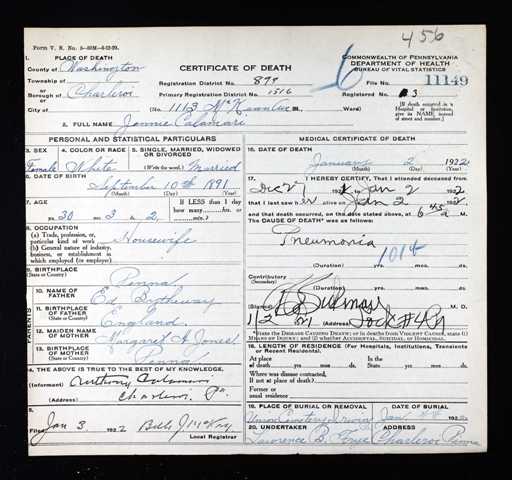 456
Form V. S. No. 5-50M-6-12-20.
1. PLACE OF DEATH
County of Washington
Township of
or
Borough of Charleroi
or
City of
CERTIFICATE OF DEATH
Registration District No. 879
Primary Registration District No. 1516
No. 1113 McKean Ave St.
COMMONWEALTH OF PENNSYLVANIA
DEPARTMENT OF HEALTH
BUREAU OF VITAL STATISTICS
File No. 11149
Registered No. 3
Ward)
[If death occurred in a Hospital or Institution, give its NAME instead of street and number.]
2. FULL NAME Jennie Calamari
PERSONAL AND STATISTICAL PARTICULARS
3. SEX Female
4. COLOR OR RACE White
5. SINGLE, MARRIED, WIDOWED OR DIVORCED Married
6. DATE OF BIRTH
September 10th 1891
(Month) (Day) (Year)
7. AGE
30 yrs. 3 mos. 2 ds.
If LESS than 1 day how many hrs. or min.
8. OCCUPATION
(a) Trade, profession, or particular kind of work Housewife
(b) General nature of industry, business, or establishment in which employed (or employer)
9. BIRTHPLACE
(State or Country) Penna
PARENTS
10. NAME OF FATHER Ed
11. BIRTHPLACE OF FATHER
(State or Country) England
12. MAIDEN NAME OF MOTHER Margaret A Jones
13. BIRTHPLACE OF MOTHER
(State or Country) Penna
14. THE ABOVE IS TRUE TO THE BEST OF MY KNOWLEDGE.
(Informant) Anthony Calamari
Charleroi Pa.
Filed Jan 3 1922
Local Registrar
MEDICAL CERTIFICATE OF DEATH
15. DATE OF DEATH
January 2 1922
(Month) (Day) (Year)
17. I HEREBY CERTIFY, That I attended deceased from
Dec 27 1921 to Jan 2 1922
that I last saw her alive on Jan 2 1922
and that death occurred, on the date stated above, at 6 45 a M.
The CAUSE OF DEATH* was as follows:
Pneumonia
1014
(Duration) yrs. mos. ds.
Contributory
(Secondary)
(Duration) yrs. mos. ds.
(Signed) M. D.
(Address)
*State the DISEASE CAUSING DEATH; or in deaths from VIOLENT CAUSES, state (1) MEANS OF INJURY; and (2) whether ACCIDENTAL, SUICIDAL or HOMICIDAL.
18. LENGTH OF RESIDENCE (For Hospitals, Institutions, Transients or Recent Residents).
At place of death yrs. mos. ds.
In the State yrs. mos. ds.
Where was disease contracted, if not at place of death?
Former or usual residence
19. PLACE OF BURIAL OR REMOVAL
Union Cemetery Irwin
DATE OF BURIAL
20. UNDERTAKER
Lawrence B. Frye
ADDRESS
Charleroi Penna